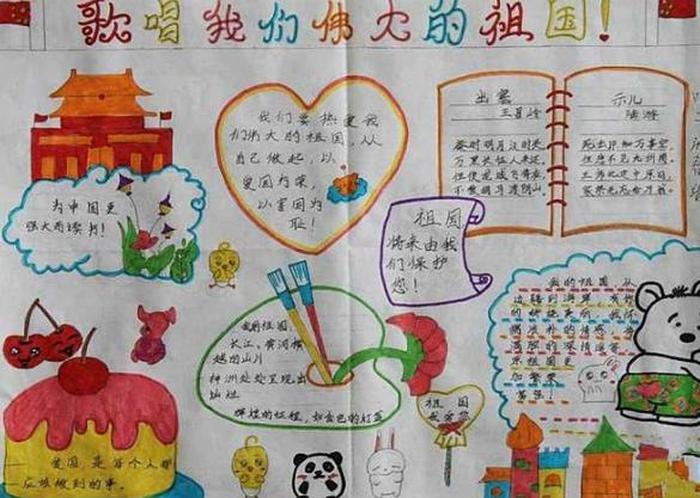 歌唱我们伟大的祖国!
我们要热爱我
们伟大的祖国,从
自己做起,以
爱国为荣,
以害国为
耻!
出塞
王昌龄
秦时明月汉时关
万里长征人未还,
但使龙城飞将在,
不教胡马渡阴山。
示儿
陆游
死去元知万事空,
但悲不见九州同。
王师北定中原日,
家祭无忘告乃翁。
为中国更
强大而读书!
祖国
将来由我
们保护
您!
我的祖国,从
我的祖国,
长江、黄河横
越的山川
神洲处处呈现出
灿烂
辉煌的征程,如金色的灯盏
祖国
我爱您
爱国是每个人都
应该做到的事。